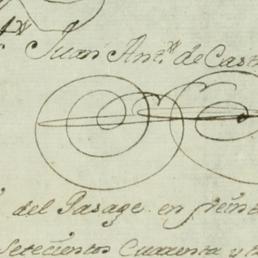 Juan Ant.º de Cast
del Pasage en
Setecientos Quarenta y